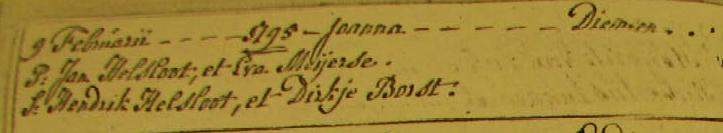 9 Februarii - - - - 1795 - Joanna - - - - - - Diemen . . .
P: Jan Helsloot, et Eva Meijerse.
S: Hendrik Helsloot, et Dirkje Borst: